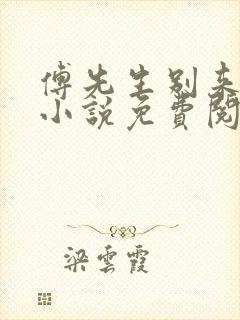 傅先生别来
小說免費閱
梁雲霞